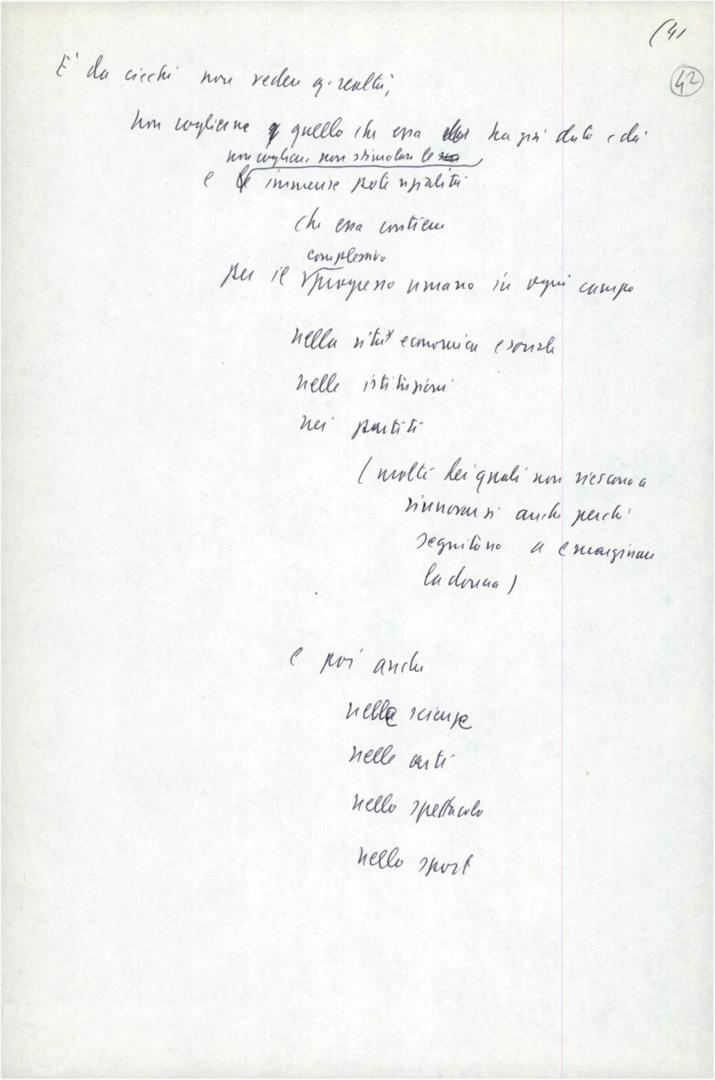 (41
42
È da ciechi non vedere q. realtà,
non coglierne quello che essa ha già dato e dà
non cogliere, non stimolare le
e immense potenzialità
che essa contiene
complessivo
per il progresso umano in ogni campo
nella vita economica e sociale
nelle istituzioni
nei partiti
(molti dei quali non riescono a
rinnovarsi anche perché
seguitano a emarginare
la donna)
e poi anche
nelle scienze
nelle arti
nello spettacolo
nello sport